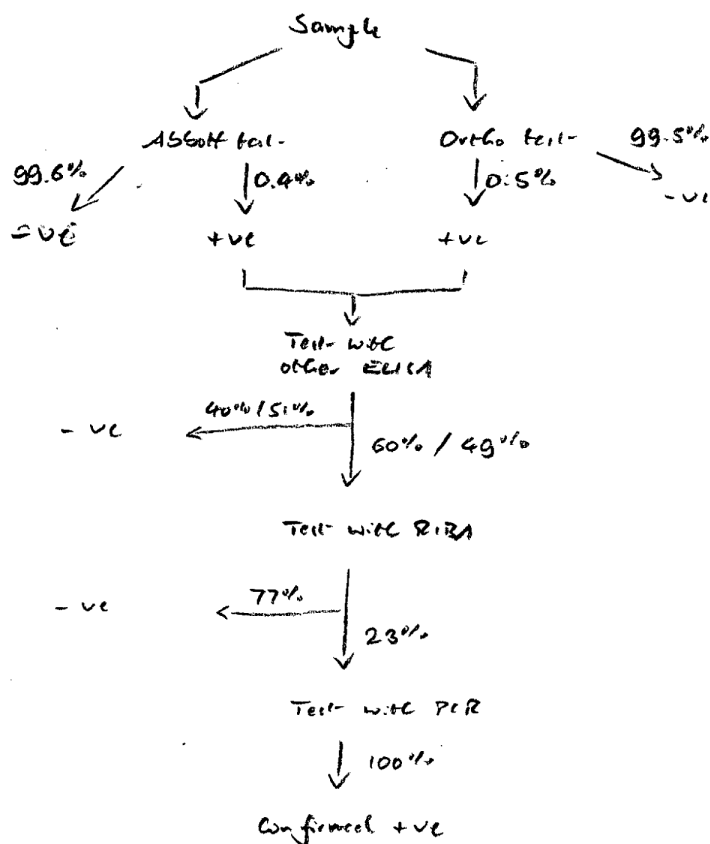 Sample
Abbott test
Ortho test
99.5%
99.6%
0.4%
0.5%
-ve
-ve
+ve
+ve
Test with
other ELISA
40%/51%
-ve
60% / 49%
Test with RIBA
77%
-ve
23%
Test with PCR
100%
Confirmed +ve